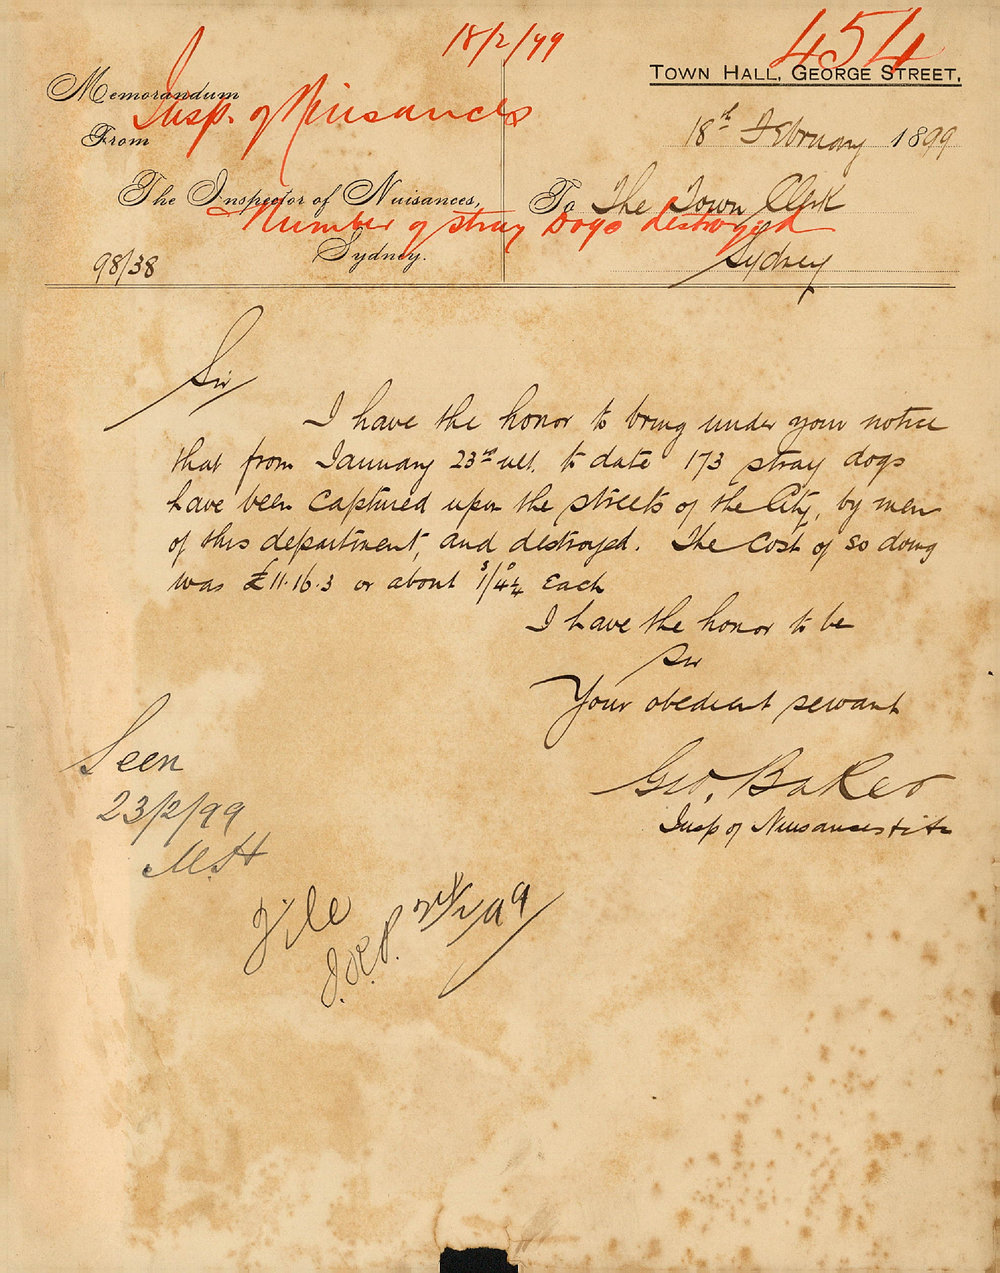 18/2/99
454
TOWN HALL, GEORGE STREET,
Memorandum
Insp. of Nuisances
From
18th February 1899
The Inspector of Nuisances,
To The Town Clerk
Number of stray Dogs destroyed
Sydney.
Sydney
98/38
Sir
I have the honor to bring under your notice
that from January 23rd ult. to date 173 stray dogs
have been captured upon the streets of the City, by men
of this department, and destroyed. The cost of so doing
was £11.16.3 or about 1/4¼ each
I have the honor to be
Sir
Your obedient servant
Geo. Baker
Insp of Nuisances
Seen
23/2/99
File